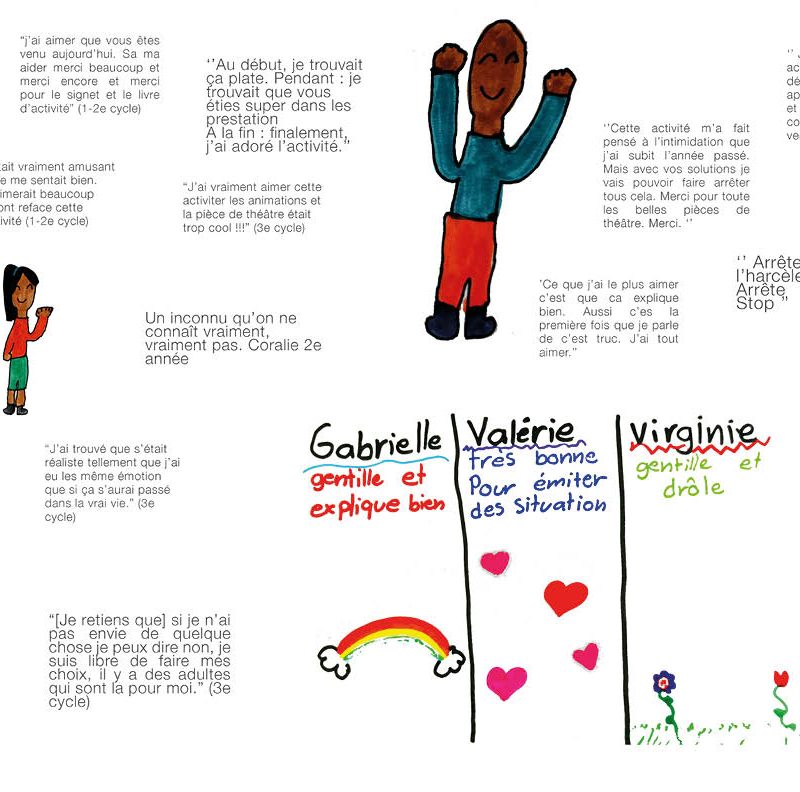 “j’ai aimer que vous êtes
venu aujourd’hui. Sa ma
aider merci beaucoup et
merci encore et merci
pour le signet et le livre
d’activité” (1-2e cycle)
‘’Au début, je trouvait
ça plate. Pendant : je
trouvait que vous
éties super dans les
prestation
A la fin : finalement,
j’ai adoré l’activité.”
‘’Cette activité m’a fait
pensé à l’intimidation que
j’ai subit l’année passé.
Mais avec vos solutions je
vais pouvoir faire arrêter
tous cela. Merci pour toute
les belles pièces de
théâtre. Merci. ‘’
vraiment amusant
me sentait bien.
beaucoup
ont reface cette
(1-2e cycle)
“J’ai vraiment aimer cette
activiter les animations et
la pièce de théâtre était
trop cool !!!” (3e cycle)
‘’ Arrête
l’harcèle
Arrête
Stop ”
‘Ce que j’ai le plus aimer
c’est que ca explique
bien. Aussi c’es la
première fois que je parle
de c’est truc. J’ai tout
aimer.”
Un inconnu qu’on ne
connaît vraiment,
vraiment pas. Coralie 2e
année
“J’ai trouvé que s’était
réaliste tellement que j’ai
eu les même émotion
que si ça s’aurai passé
dans la vrai vie.” (3e
cycle)
Gabrielle
gentille et
explique bien
Valérie
très bonne
Pour émiter
des situation
Virginie
gentille et
drôle
“[Je retiens que] si je n’ai
pas envie de quelque
chose je peux dire non, je
suis libre de faire mes
choix, il y a des adultes
qui sont là pour moi.” (3e
cycle)